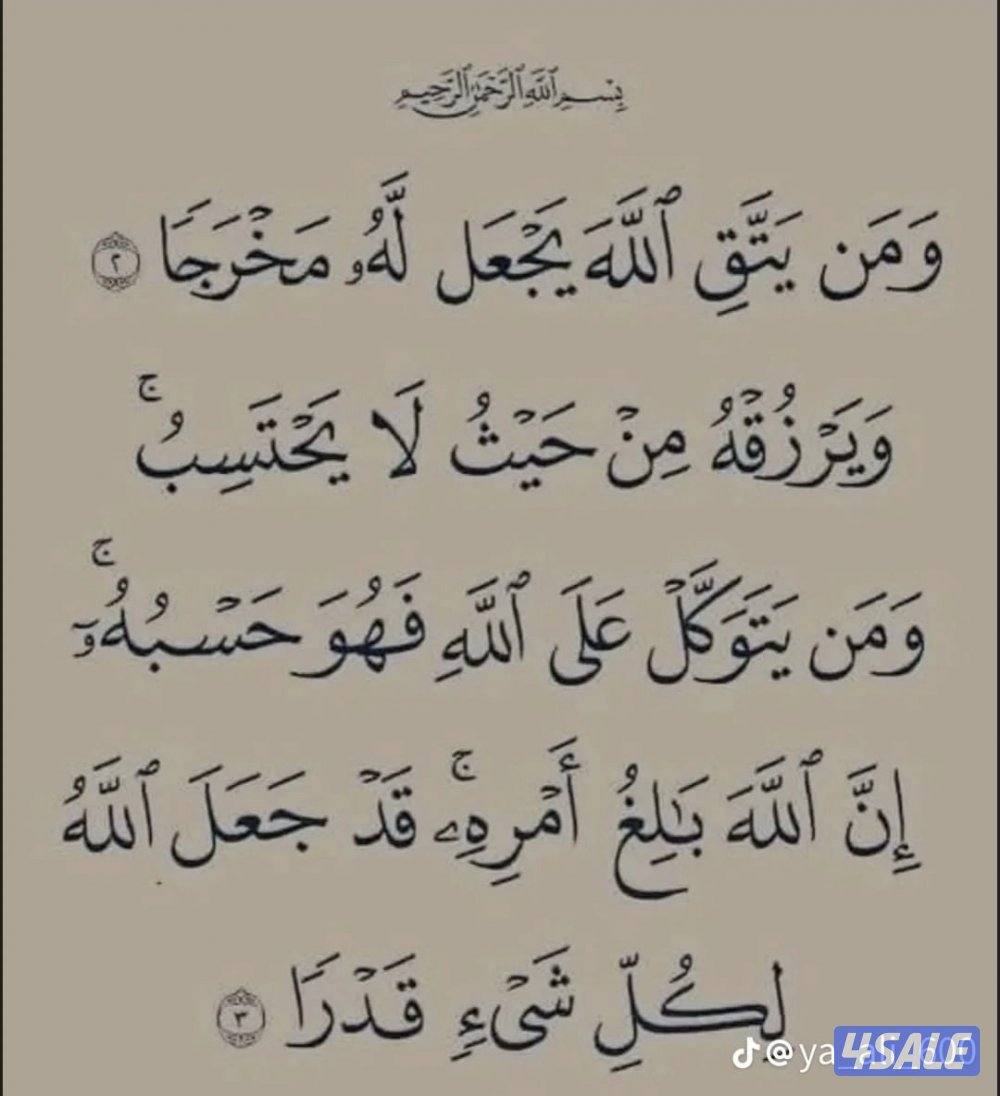 بِسْمِ ٱللَّهِ ٱلرَّحْمَٰنِ ٱلرَّحِيمِ
وَمَن يَتَّقِ ٱللَّهَ يَجْعَل لَّهُۥ مَخْرَجًا ٢
وَيَرْزُقْهُ مِنْ حَيْثُ لَا يَحْتَسِبُ ۚ
وَمَن يَتَوَكَّلْ عَلَى ٱللَّهِ فَهُوَ حَسْبُهُۥٓ ۚ
إِنَّ ٱللَّهَ بَٰلِغُ أَمْرِهِۦ ۚ قَدْ جَعَلَ ٱللَّهُ
لِكُلِّ شَىْءٍ قَدْرًا ٣
4SALE